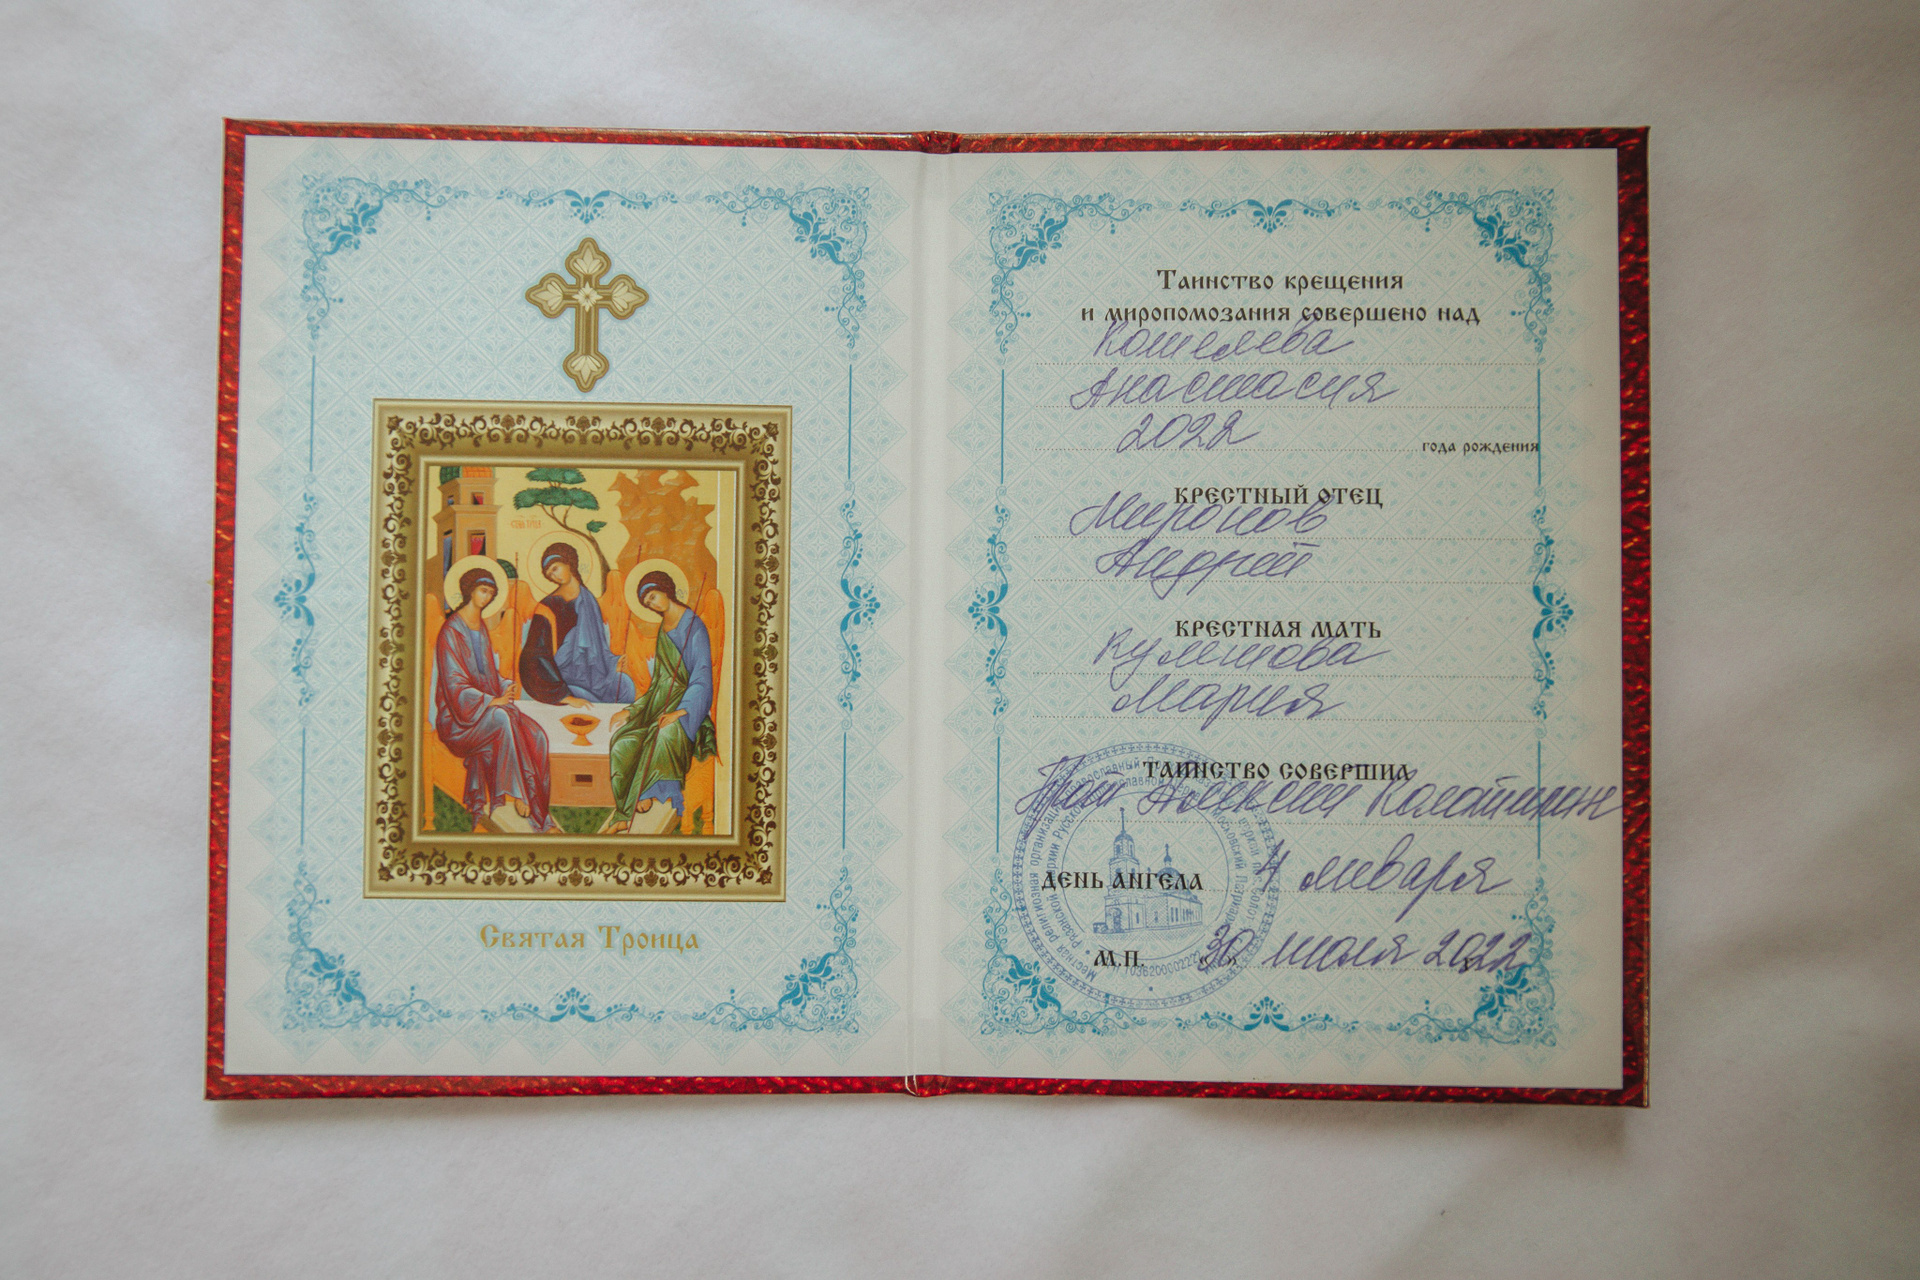 Святая Троица
Таинство крещения
и миропомозания совершено над
Кошелева
Анастасия
2022 года рождения
крестный отец
Миронов
Андрей
крестная мать
Мария
таинство совершил
Прот Алексий
день ангела 4 января
М.П. «30» июля 2022